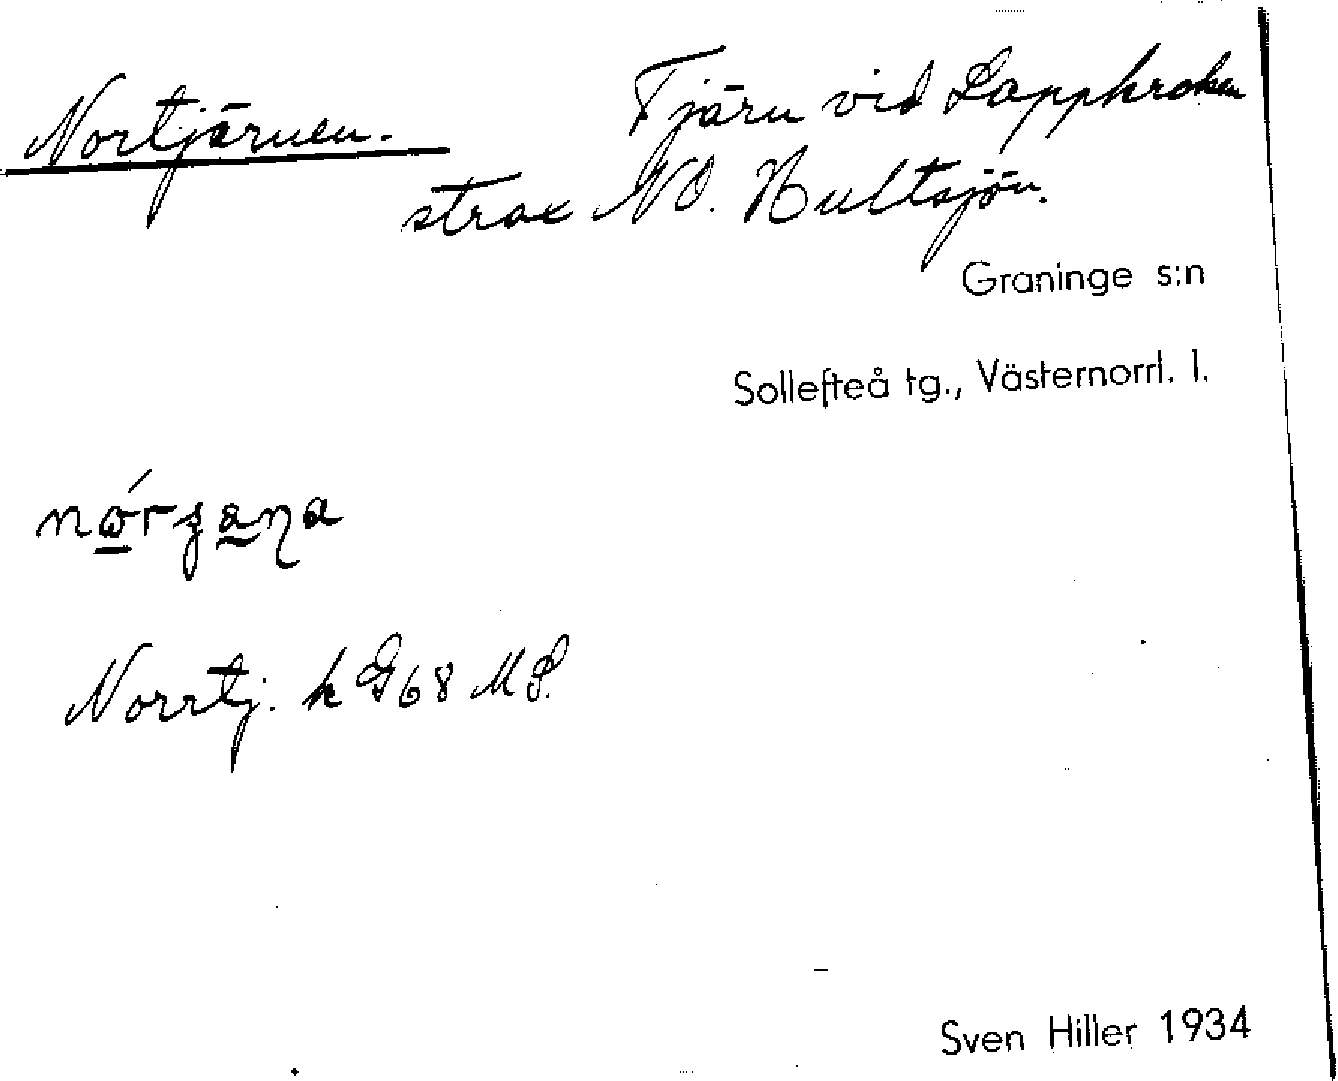 Nortjärnen. Tjärn vid Lappkroken
strax NO. Hultsjön.
Graninge s:n
Sollefteå tg., Västernorrl. l.
Norrtj. k G68 MP.
Sven Hiller 1934